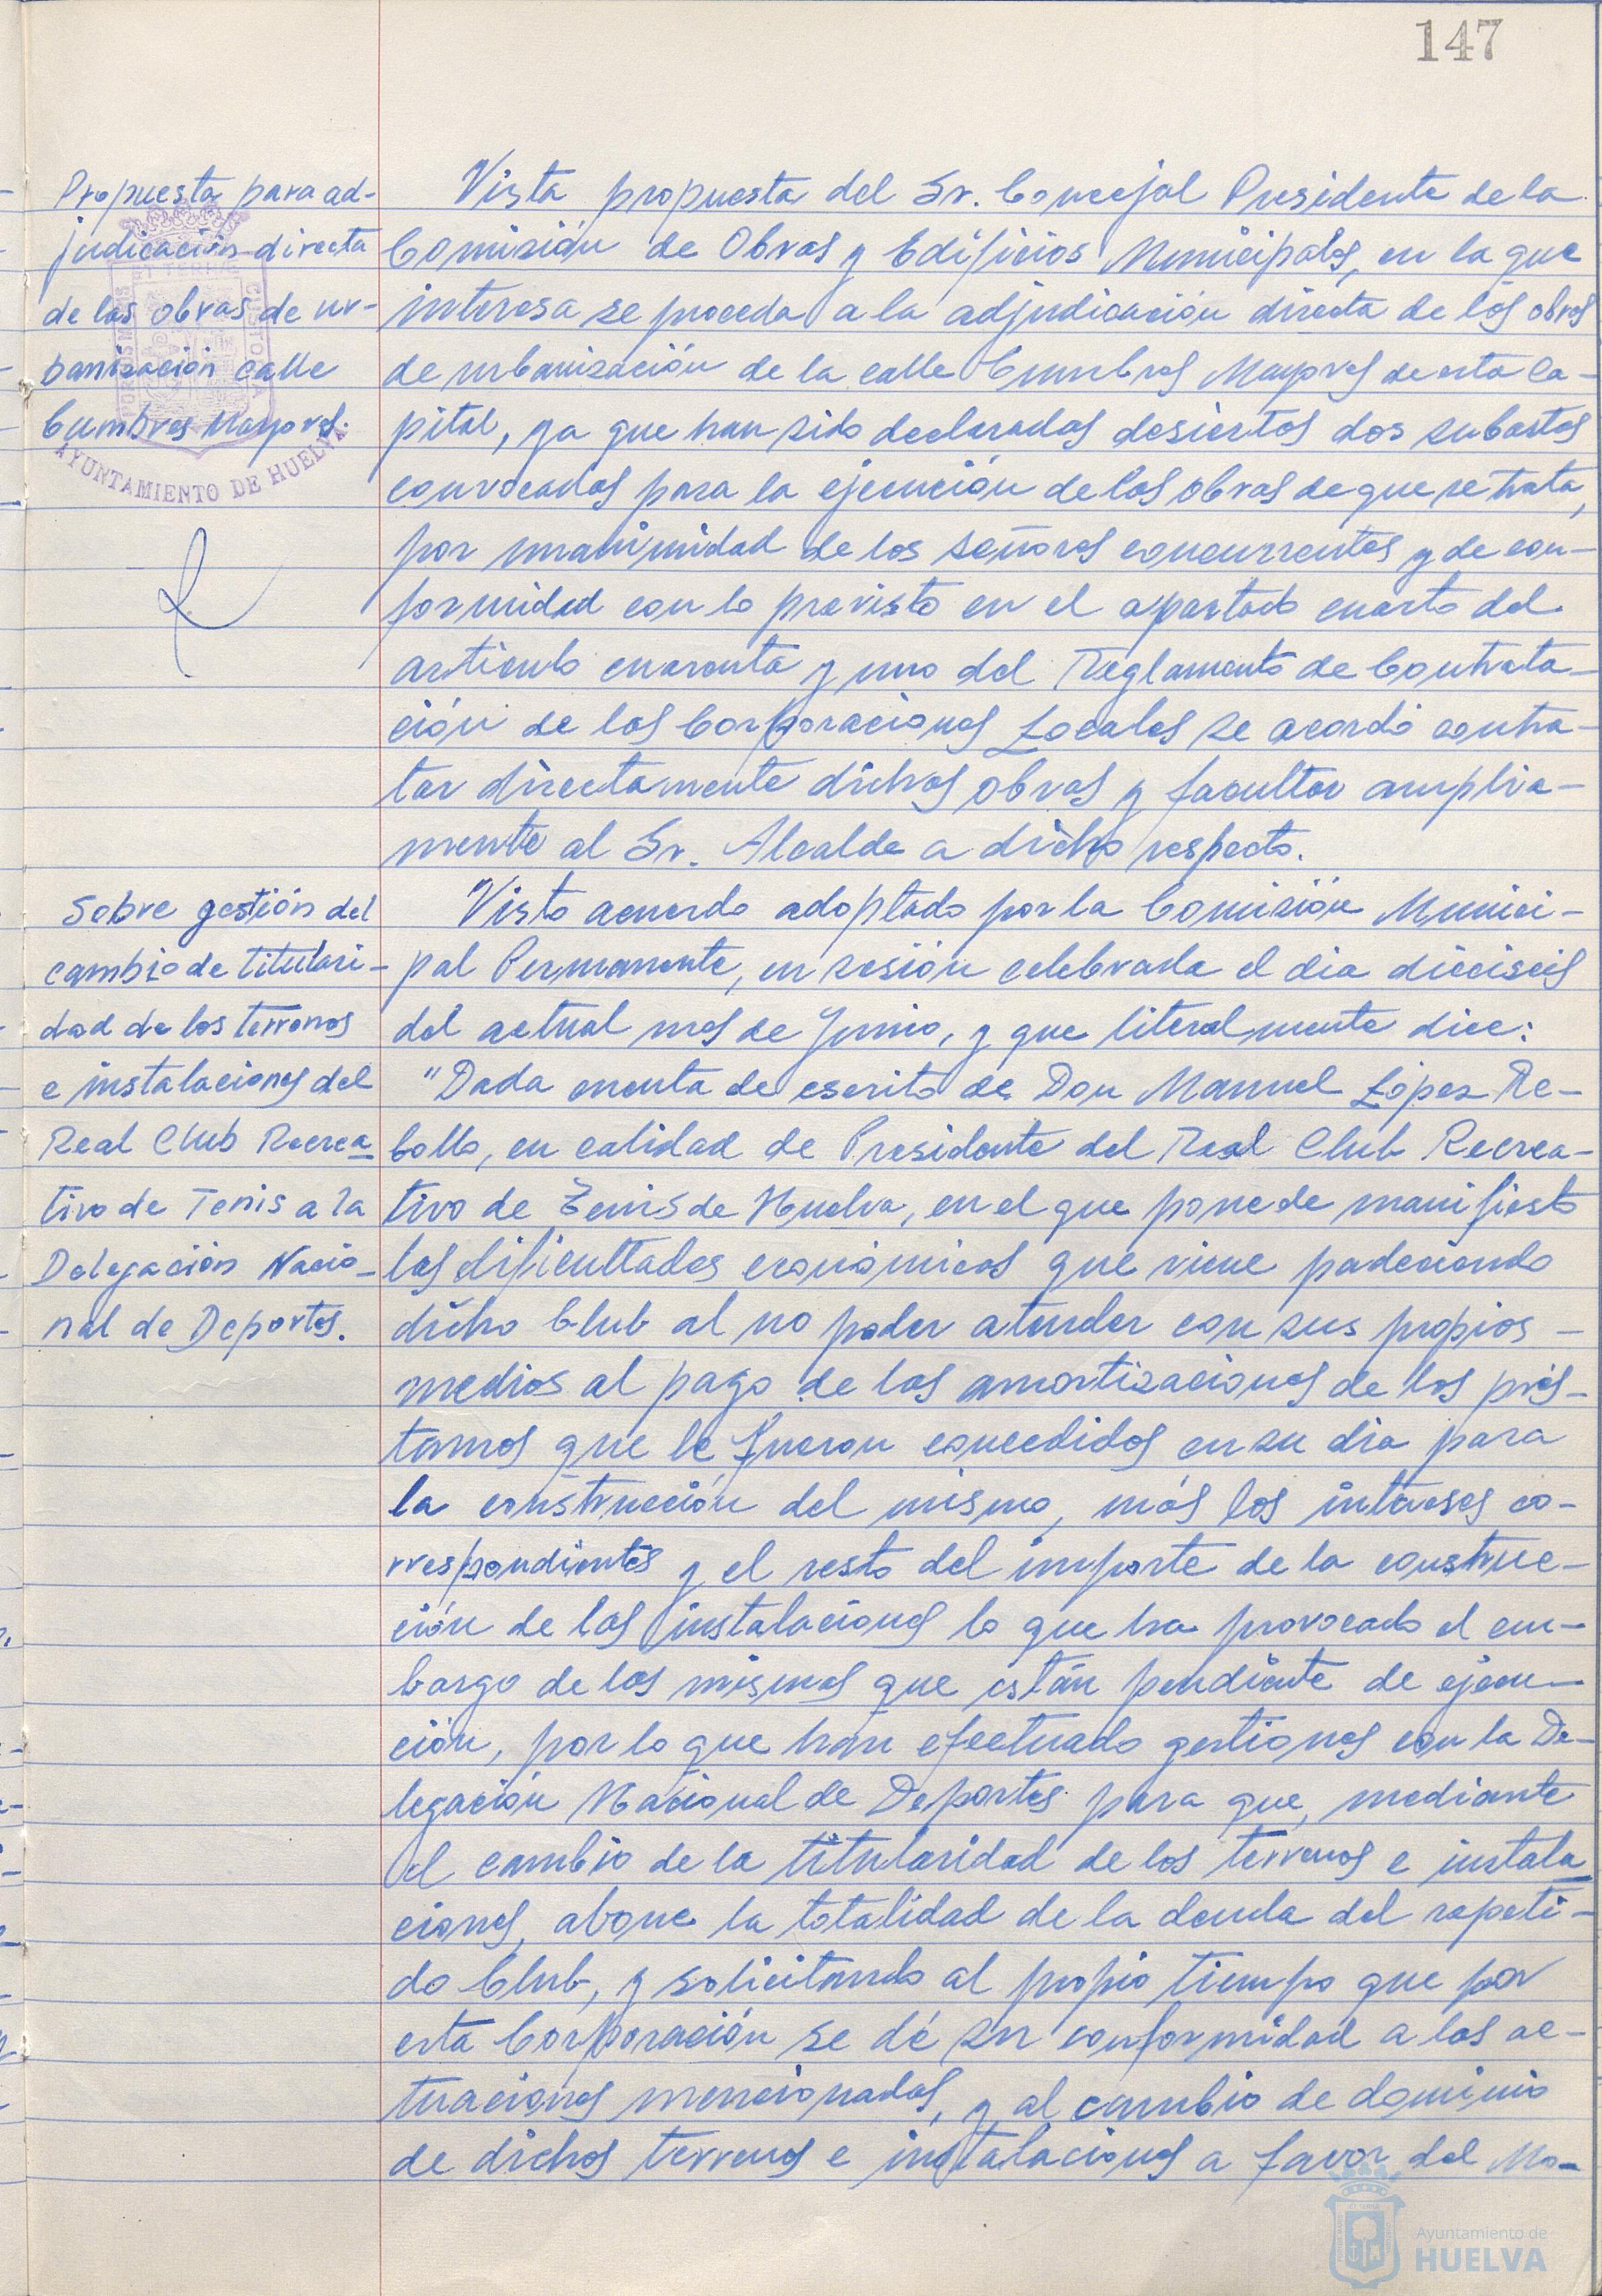 147
Propuesta para ad-
judicación directa
de las obras de ur-
banización calle
Cumbres Mayores.
AYUNTAMIENTO DE HUELVA
Vista propuesta del Sr. Concejal Presidente de la
Comisión de Obras y Edificios Municipales, en la que
interesa se proceda a la adjudicación directa de las obras
de urbanización de la calle Cumbres Mayores de esta Ca-
pital, ya que han sido declaradas desiertas dos subastas
convocadas para la ejecución de las obras de que se trata,
por unanimidad de los señores concurrentes y de con-
formidad con lo previsto en el apartado cuarto del
artículo cuarenta y uno del Reglamento de Contrata-
ción de las Corporaciones Locales se acordó contra-
tar directamente dichas obras y facultar amplia-
mente al Sr. Alcalde a dicho respecto.
Sobre gestión del
cambio de titulari-
dad de los terrenos
e instalaciones del
Real Club Recrea-
tivo de Tenis a la
Delegación Nacio-
nal de Deportes.
Visto acuerdo adoptado por la Comisión Munici-
pal Permanente, en sesión celebrada el dia dieciseis
del actual mes de Junio, y que literalmente dice:
"Dada cuenta de escrito de Don Manuel López Re-
bollo, en calidad de Presidente del Real Club Recrea-
tivo de Tenis de Huelva, en el que pone de manifiesto
las dificultades económicas que viene padeciendo
dicho Club al no poder atender con sus propios -
medios al pago de las amortizaciones de los prés-
tamos que le fueron concedidos en su dia para
la construcción del mismo, más los intereses co-
rrespondientes y el resto del importe de la construc-
ción de las instalaciones lo que ha provocado el em-
bargo de las mismas que están pendiente de ejecu-
ción, por lo que han efectuado gestiones con la De-
legación Nacional de Deportes para que, mediante
el cambio de la titularidad de los terrenos e instala
ciones, abone la totalidad de la deuda del repeti-
do Club, y solicitando al propio tiempo que por
esta Corporación se dé su conformidad a las ac-
tuaciones mencionadas, y al cambio de dominio
de dichos terrenos e instalaciones a favor del Mo-
Ayuntamiento de
HUELVA